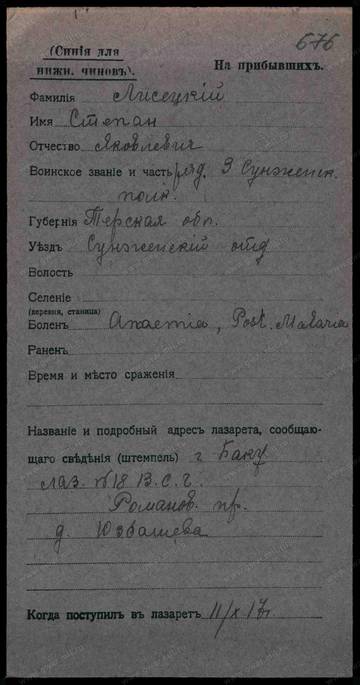 575
(Синія для
нижн. чиновъ).
На прибывшихъ.
Фамилія Лисецкій
Имя Степан
Отчество Яковлевич
Воинское званіе и часть ряд. 3 Сунженск.
полк.
Губернія Терская обл.
Уѣздъ Сунженскій отд
Волость
Селеніе
(деревня, станица)
Боленъ Anaemia, Post. Malaria
Раненъ
Время и мѣсто сраженія
Названіе и подробный адресъ лазарета, сообщаю-
щаго свѣдѣнія (штемпель) г Баку
лаз. №18 В.С.Г.
Романов. пр.
д. Юзбашева
Когда поступилъ въ лазаретъ 11/X 17г.